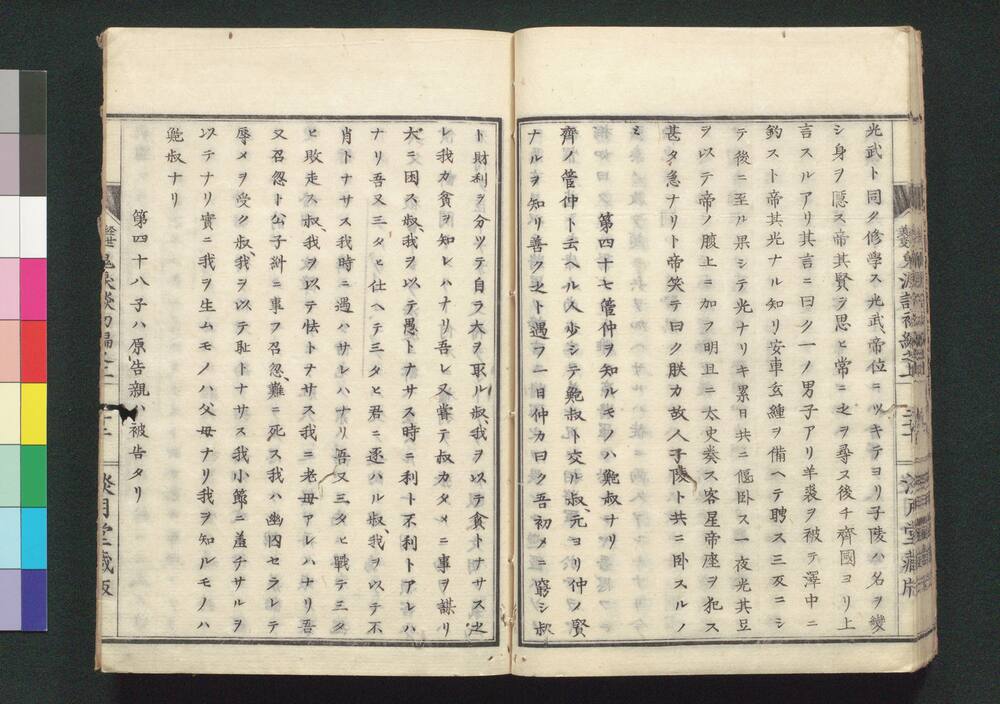 光武ト同ク修學ス光武帝位ニツキテヨリ子陵ハ名ヲ變
シ身ヲ隱ス帝其賢ヲ思ヒ常ニ之ヲ尋ス後チ齊國ヨリ上
言スルアリ其言ニ曰ク一ノ男子アリ羊裘ヲ被テ澤中ニ
釣スト帝其光ナル知リ安車玄纁ヲ備ヘテ聘ス三反ニシ
テ後ニ至ル果シテ光ナリキ累日共ニ偃臥ス一夜光其足
ヲ以テ帝ノ腹上ニ加フ明旦ニ太史奏ス客星帝座ヲ犯ス
甚タ急ナリト帝笑テ曰ク朕カ故人子陵ト共ニ卧スルノ
ミ
第四十七管仲ヲ知ルモノハ鮑叔ナリ
齊ノ管仲ト云ヘル人少シテ鮑叔ト交ル叔、元ヨリ仲ノ賢
ナルヲ知リ善ク之ト遇フ一日仲カ曰ク吾初メニ窮シ叔
ト財利ヲ分ツテ自ラ大ヲ取ル叔、我ヲ以テ貪トナサス之
レ我カ貪ヲ知レハナリ吾レ又嘗テ叔カタメニ事ヲ謀リ
大ニ困ス叔、我ヲ以テ愚トナサス時ニ利ト不利トアレハ
ナリ吾又三タヒ仕ヘテ三タヒ君ニ逐ハル叔、我ヲ以テ不
肖トナサス我時ニ遇ハサレハナリ吾又三タヒ戰テ三タ
ヒ敗走ス叔、我ヲ以テ怯トナサス我ニ老母アレハナリ吾
又召忽ト公子糾ニ事フ召忽、難ニ死ス我ハ幽囚セラレテ
辱メヲ受ク叔、我ヲ以テ恥トナサス我小節ニ羞チサルヲ
以テナリ實ニ我ヲ生ムモノハ父母ナリ我ヲ知ルモノハ
鮑叔ナリ
第四十八子ハ原告親ハ被告タリ